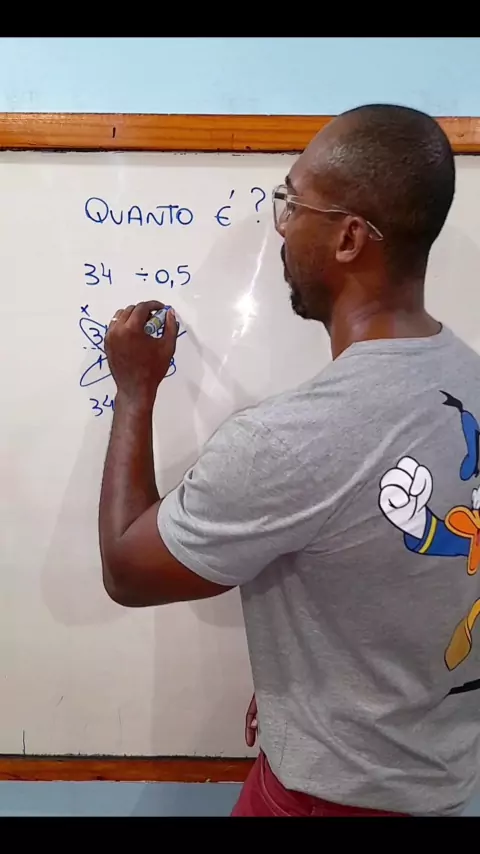 QUANTO É ?
34 ÷ 0,5
34